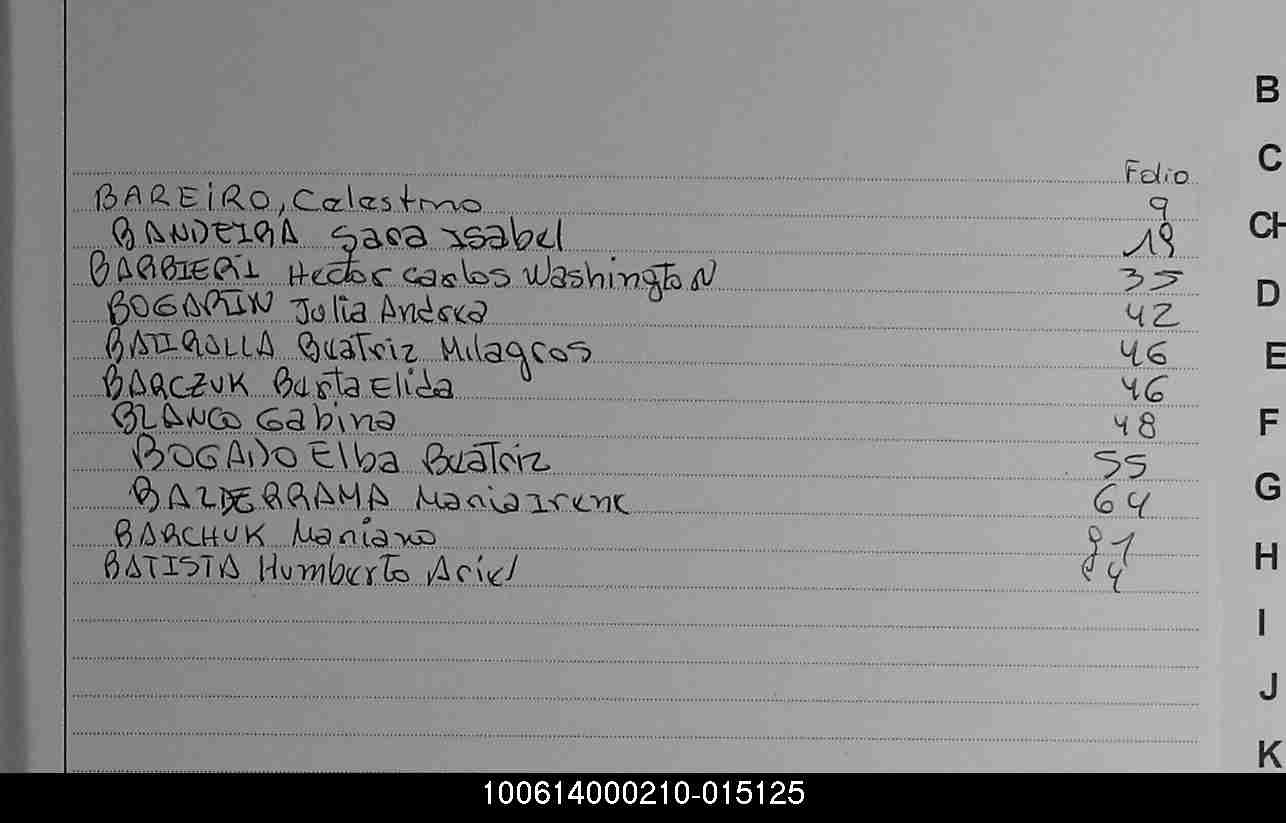 Folio
BAREIRO, Celestino 9
BANDEIRA Sara Isabel 19
BARBIERI Hector Carlos Washington 35
BOGARIN Julia Andrea 42
BATIROLLA Beatriz Milagros 46
BARCZUK Berta Elida 46
BLANCO Gabina 48
BOGADO Elba Beatriz 55
BALDERRAMA Maria Irene 64
BARCHUK Mariano 81
BATISTA Humberto Ariel 84
B
C
CH
D
E
F
G
H
I
J
K
100614000210-015125